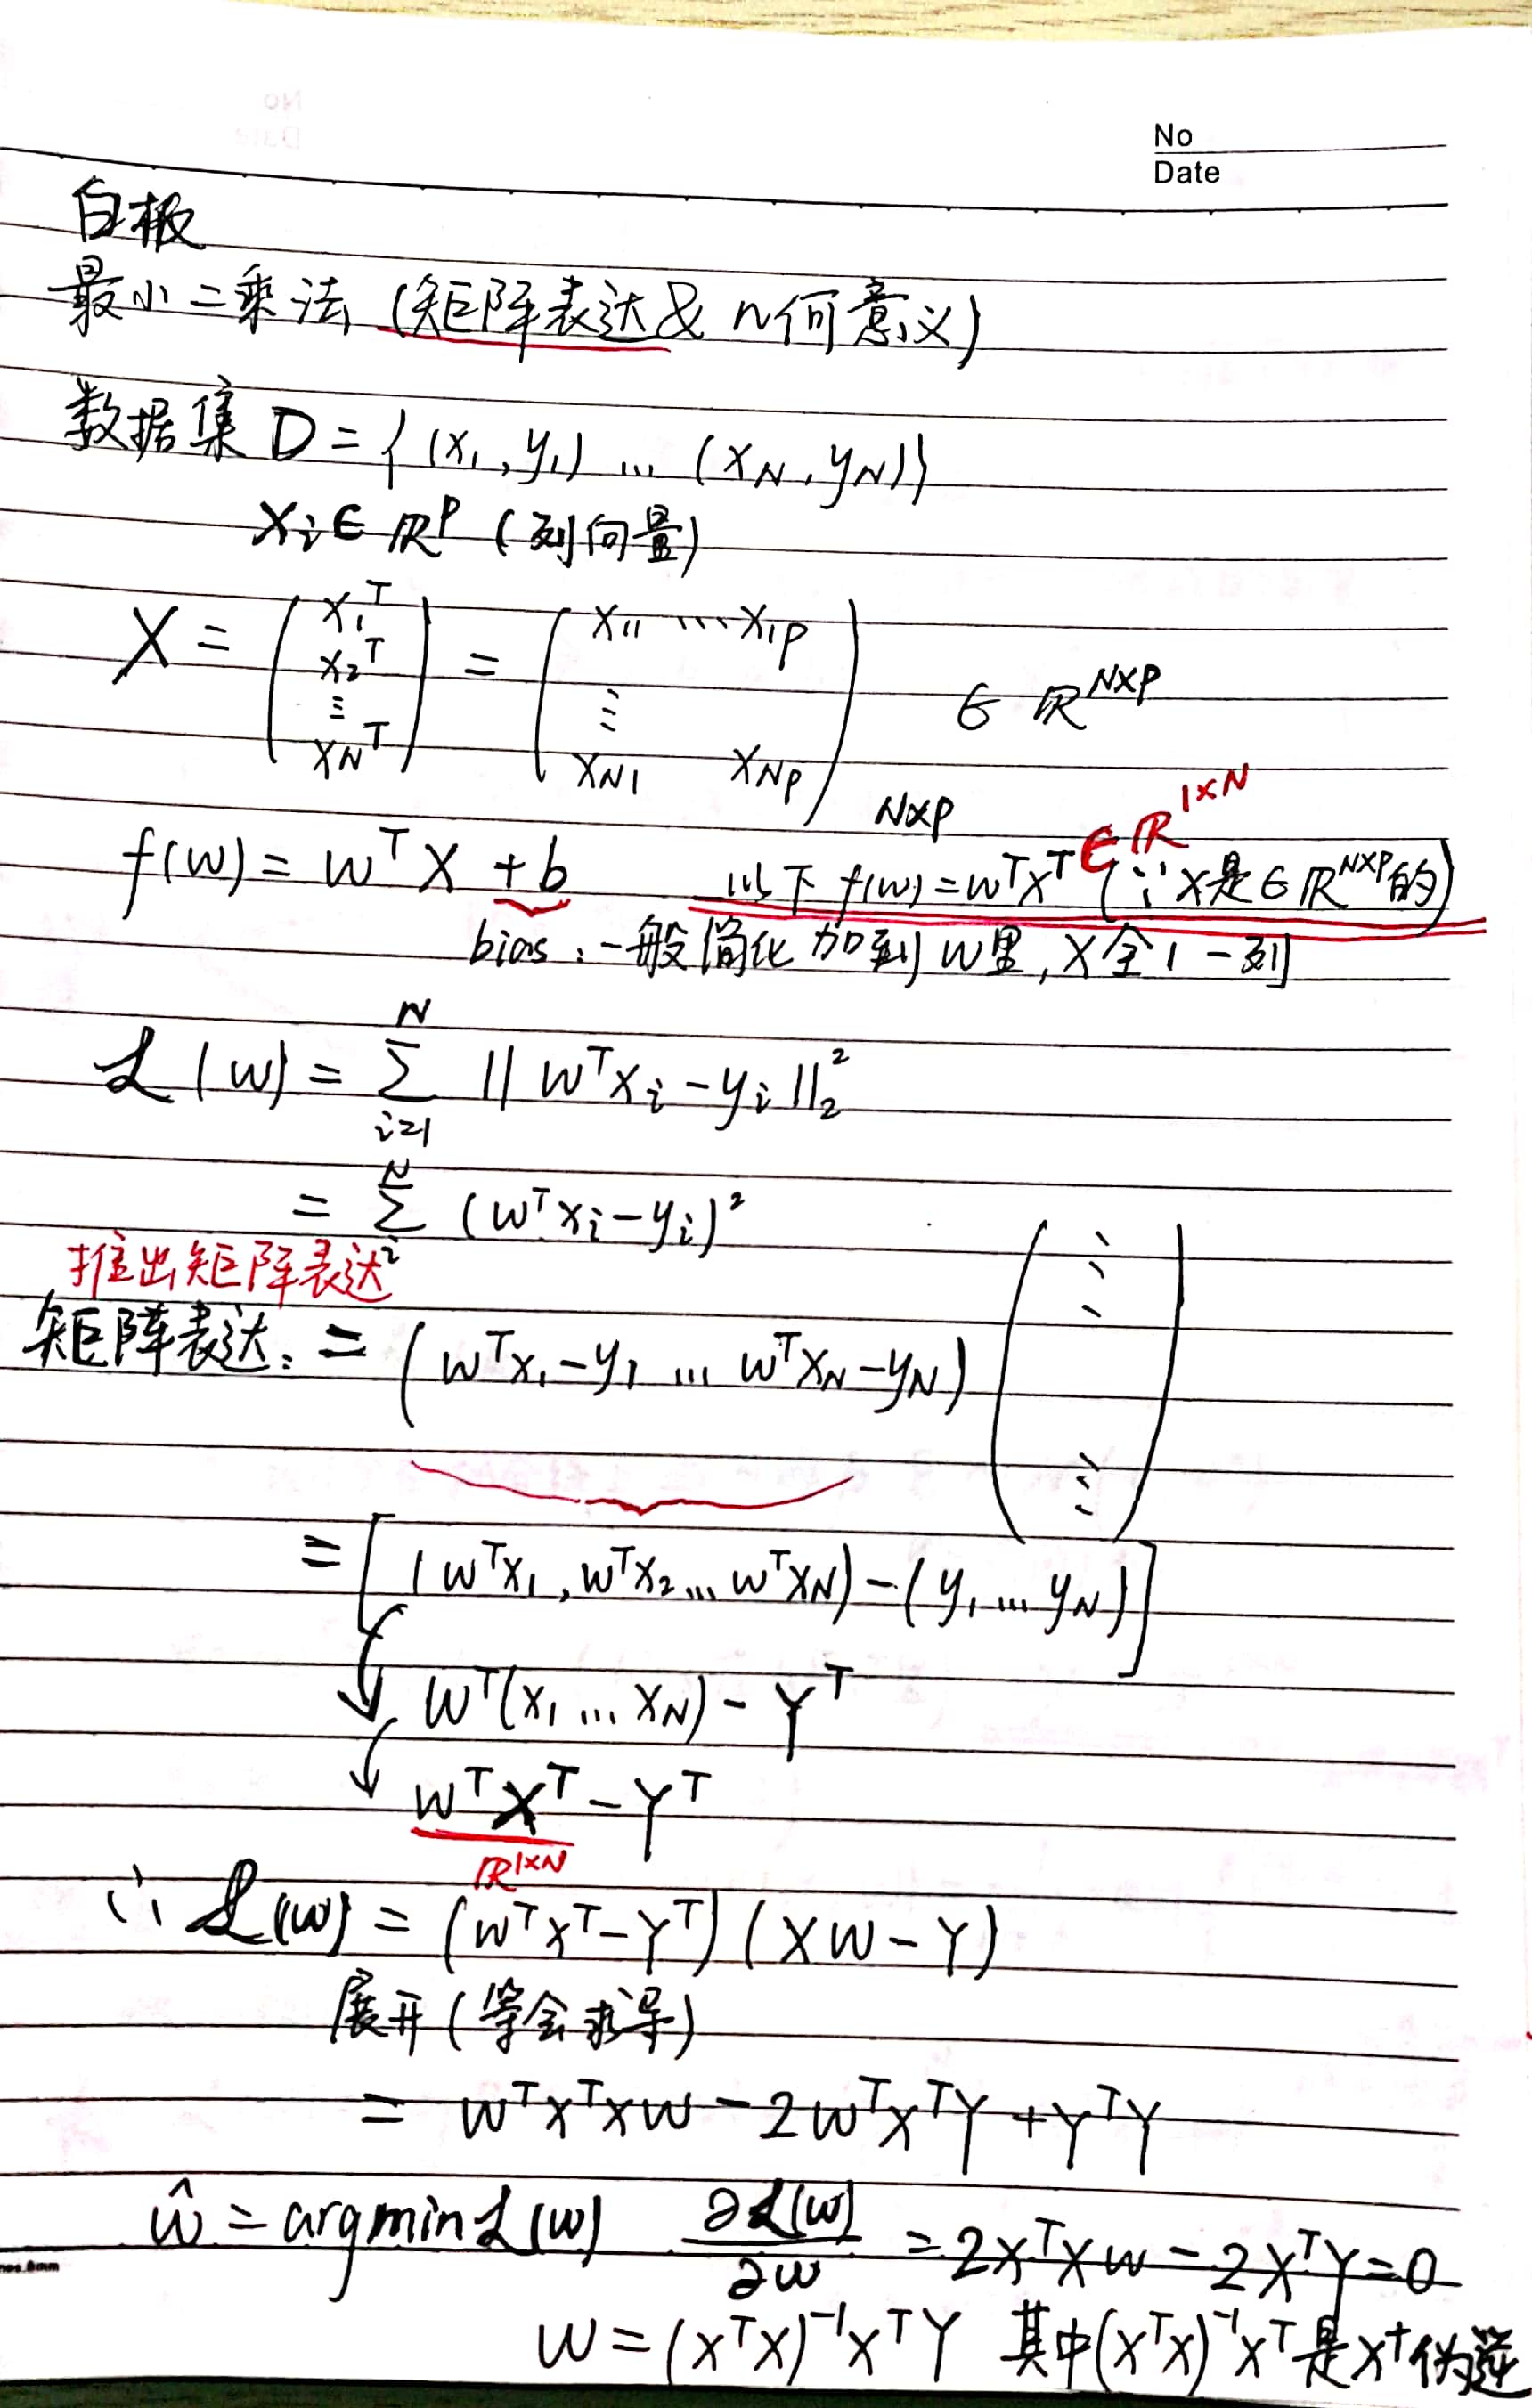 No
Date
白板
最小二乘法 (矩阵表达 & 几何意义)
数据集 D = {(x₁, y₁) ... (x_N, y_N)}
xᵢ ∈ ℝᵖ (列向量)
X = ( x₁ᵀ x₂ᵀ ⋮ x_Nᵀ ) = ( x₁₁ ... x₁p ⋮ x_N1 x_Np ) ∈ ℝ^{N×P}
N×P
∈ ℝ^{1×N}
f(w) = wᵀX + b 以下 f(w) = wᵀXᵀ (∵ X是∈ℝ^{N×P}的)
bias: 一般简化加到 w里, X全1一列
ℒ(w) = Σ_{i=1}^{N} ||wᵀxᵢ - yᵢ||₂²
= Σ_{i}^{N} (wᵀxᵢ - yᵢ)²
推出矩阵表达
矩阵表达: = (wᵀx₁ - y₁ ... wᵀx_N - y_N) ( ⋮ )
= [(wᵀx₁, wᵀx₂ ... wᵀx_N) - (y₁ ... y_N)]
wᵀ(x₁ ... x_N) - Yᵀ
wᵀXᵀ - Yᵀ
ℝ^{1×N}
∴ ℒ(w) = (wᵀXᵀ - Yᵀ)(Xw - Y)
展开 (等会求导)
= wᵀXᵀXw - 2wᵀXᵀY + YᵀY
ŵ = argmin ℒ(w) ∂ℒ(w)/∂w = 2XᵀXw - 2XᵀY = 0
w = (XᵀX)⁻¹XᵀY 其中(XᵀX)⁻¹Xᵀ是X†伪逆